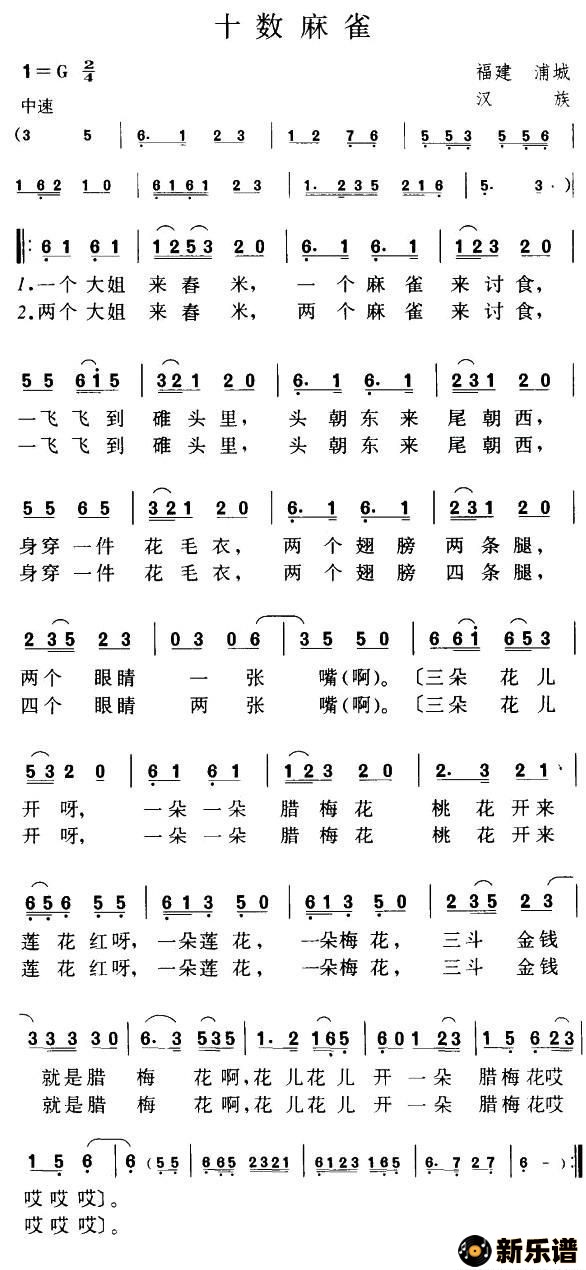 十数麻雀
1=G 2/4
福建 浦城
中速
汉族
(3 5 | 6. 1 2 3 | 1 2 7 6 | 5 5 3 5 5 6 |
1 6 2 1 0 | 6 1 6 1 2 3 | 1. 2 3 5 2 1 6 | 5. 3 -)
‖: 6 1 6 1 | 1 2 5 3 2 0 | 6. 1 6. 1 | 1 2 3 2 0 |
1.一个大姐 来舂米, 一个麻雀 来讨食,
2.两个大姐 来舂米, 两个麻雀 来讨食,
5 5 6 i 5 | 3 2 1 2 0 | 6. 1 6. 1 | 2 3 1 2 0 |
一飞飞到 碓头里, 头朝东来 尾朝西,
一飞飞到 碓头里, 头朝东来 尾朝西,
5 5 6 5 | 3 2 1 2 0 | 6. 1 6. 1 | 2 3 1 2 0 |
身穿一件 花毛衣, 两个翅膀 两条腿,
身穿一件 花毛衣, 两个翅膀 四条腿,
2 3 5 2 3 | 0 3 0 6 | 3 5 5 0 | 6 6 i 6 5 3 |
两个眼睛 一张 嘴(啊)。〔三朵花儿
四个眼睛 两张 嘴(啊)。〔三朵花儿
5 3 2 0 | 6 1 6 1 | 1 2 3 2 0 | 2. 3 2 1 |
开呀, 一朵一朵 腊梅花 桃花开来
开呀, 一朵一朵 腊梅花 桃花开来
6 5 6 5 5 | 6 1 3 5 0 | 6 1 3 5 0 | 2 3 5 2 3 |
莲花红呀, 一朵莲花, 一朵梅花, 三斗金钱
莲花红呀, 一朵莲花, 一朵梅花, 三斗金钱
3 3 3 3 0 | 6. 3 5 3 5 | 1. 2 1 6 5 | 6 0 1 2 3 | 1 5 6 2 3 |
就是腊 梅花啊, 花儿花儿 开一朵 腊梅花哎
就是腊 梅花啊, 花儿花儿 开一朵 腊梅花哎
1 5 6 | 6 (5 5 | 6 6 5 2 3 2 1 | 6 1 2 3 1 6 5 | 6. 7 2 7 | 6 -) :‖
哎哎哎〕。
哎哎哎〕。
新乐谱